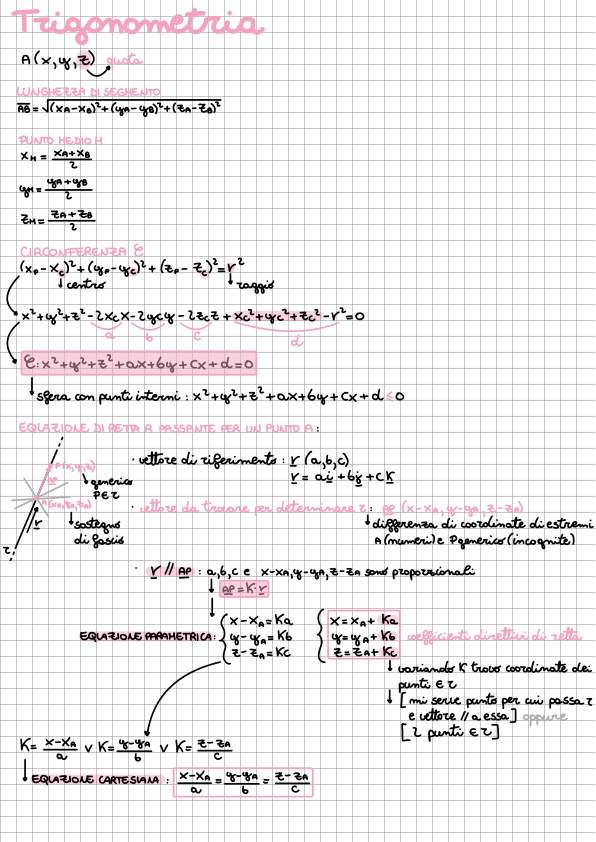 Trigonometria
A(x,y,z) quota
LUNGHEZZA DI SEGMENTO
AB = √(xA-xB)²+(yA-yB)²+(zA-zB)²
PUNTO MEDIO M
xM = xA+xB / 2
yM = yA+yB / 2
zM = zA+zB / 2
CIRCONFERENZA C
(xP-xC)²+(yP-yC)²+(zP-zC)²=r²
↓centro ↓raggio
x²+y²+z²-2xCx-2yCy-2zCz+xC²+yC²+zC²-r²=0
a b c d
C: x²+y²+z²+ax+6y+Cx+d=0
↓sfera con punti interni: x²+y²+z²+ax+6y+Cx+d≤0
EQUAZIONE DI RETTA R PASSANTE PER UN PUNTO A:
P(x,y,z)
AP
↓generico
P∈r
A(xA,yA,zA)
r
↓sostegno
di fascio
r
· vettore di riferimento: r (a,b,c)
r = ai+6j+ck
· vettore da trovare per determinare r: AP (x-xA, y-yA, z-zA)
↓differenza di coordinate di estremi
A(numeri) e Pgenerico(incognite)
· r // AP: a,b,c e x-xA, y-yA, z-zA sono proporzionali
AP=K·r
EQUAZIONE PARAMETRICA: { x-xA=Ka { x=xA+Ka
y-yA=Kb y=yA+Kb coefficienti direttivi di retta
z-zA=Kc z=zA+Kc
↓variando K trovo coordinate dei
punti ∈ r
↓[mi serve punto per cui passa r
e vettore // a essa] oppure
[2 punti ∈ r]
K= x-xA / a v K= y-yA / b v K= z-zA / c
↓EQUAZIONE CARTESIANA: x-xA / a = y-yA / b = z-zA / c